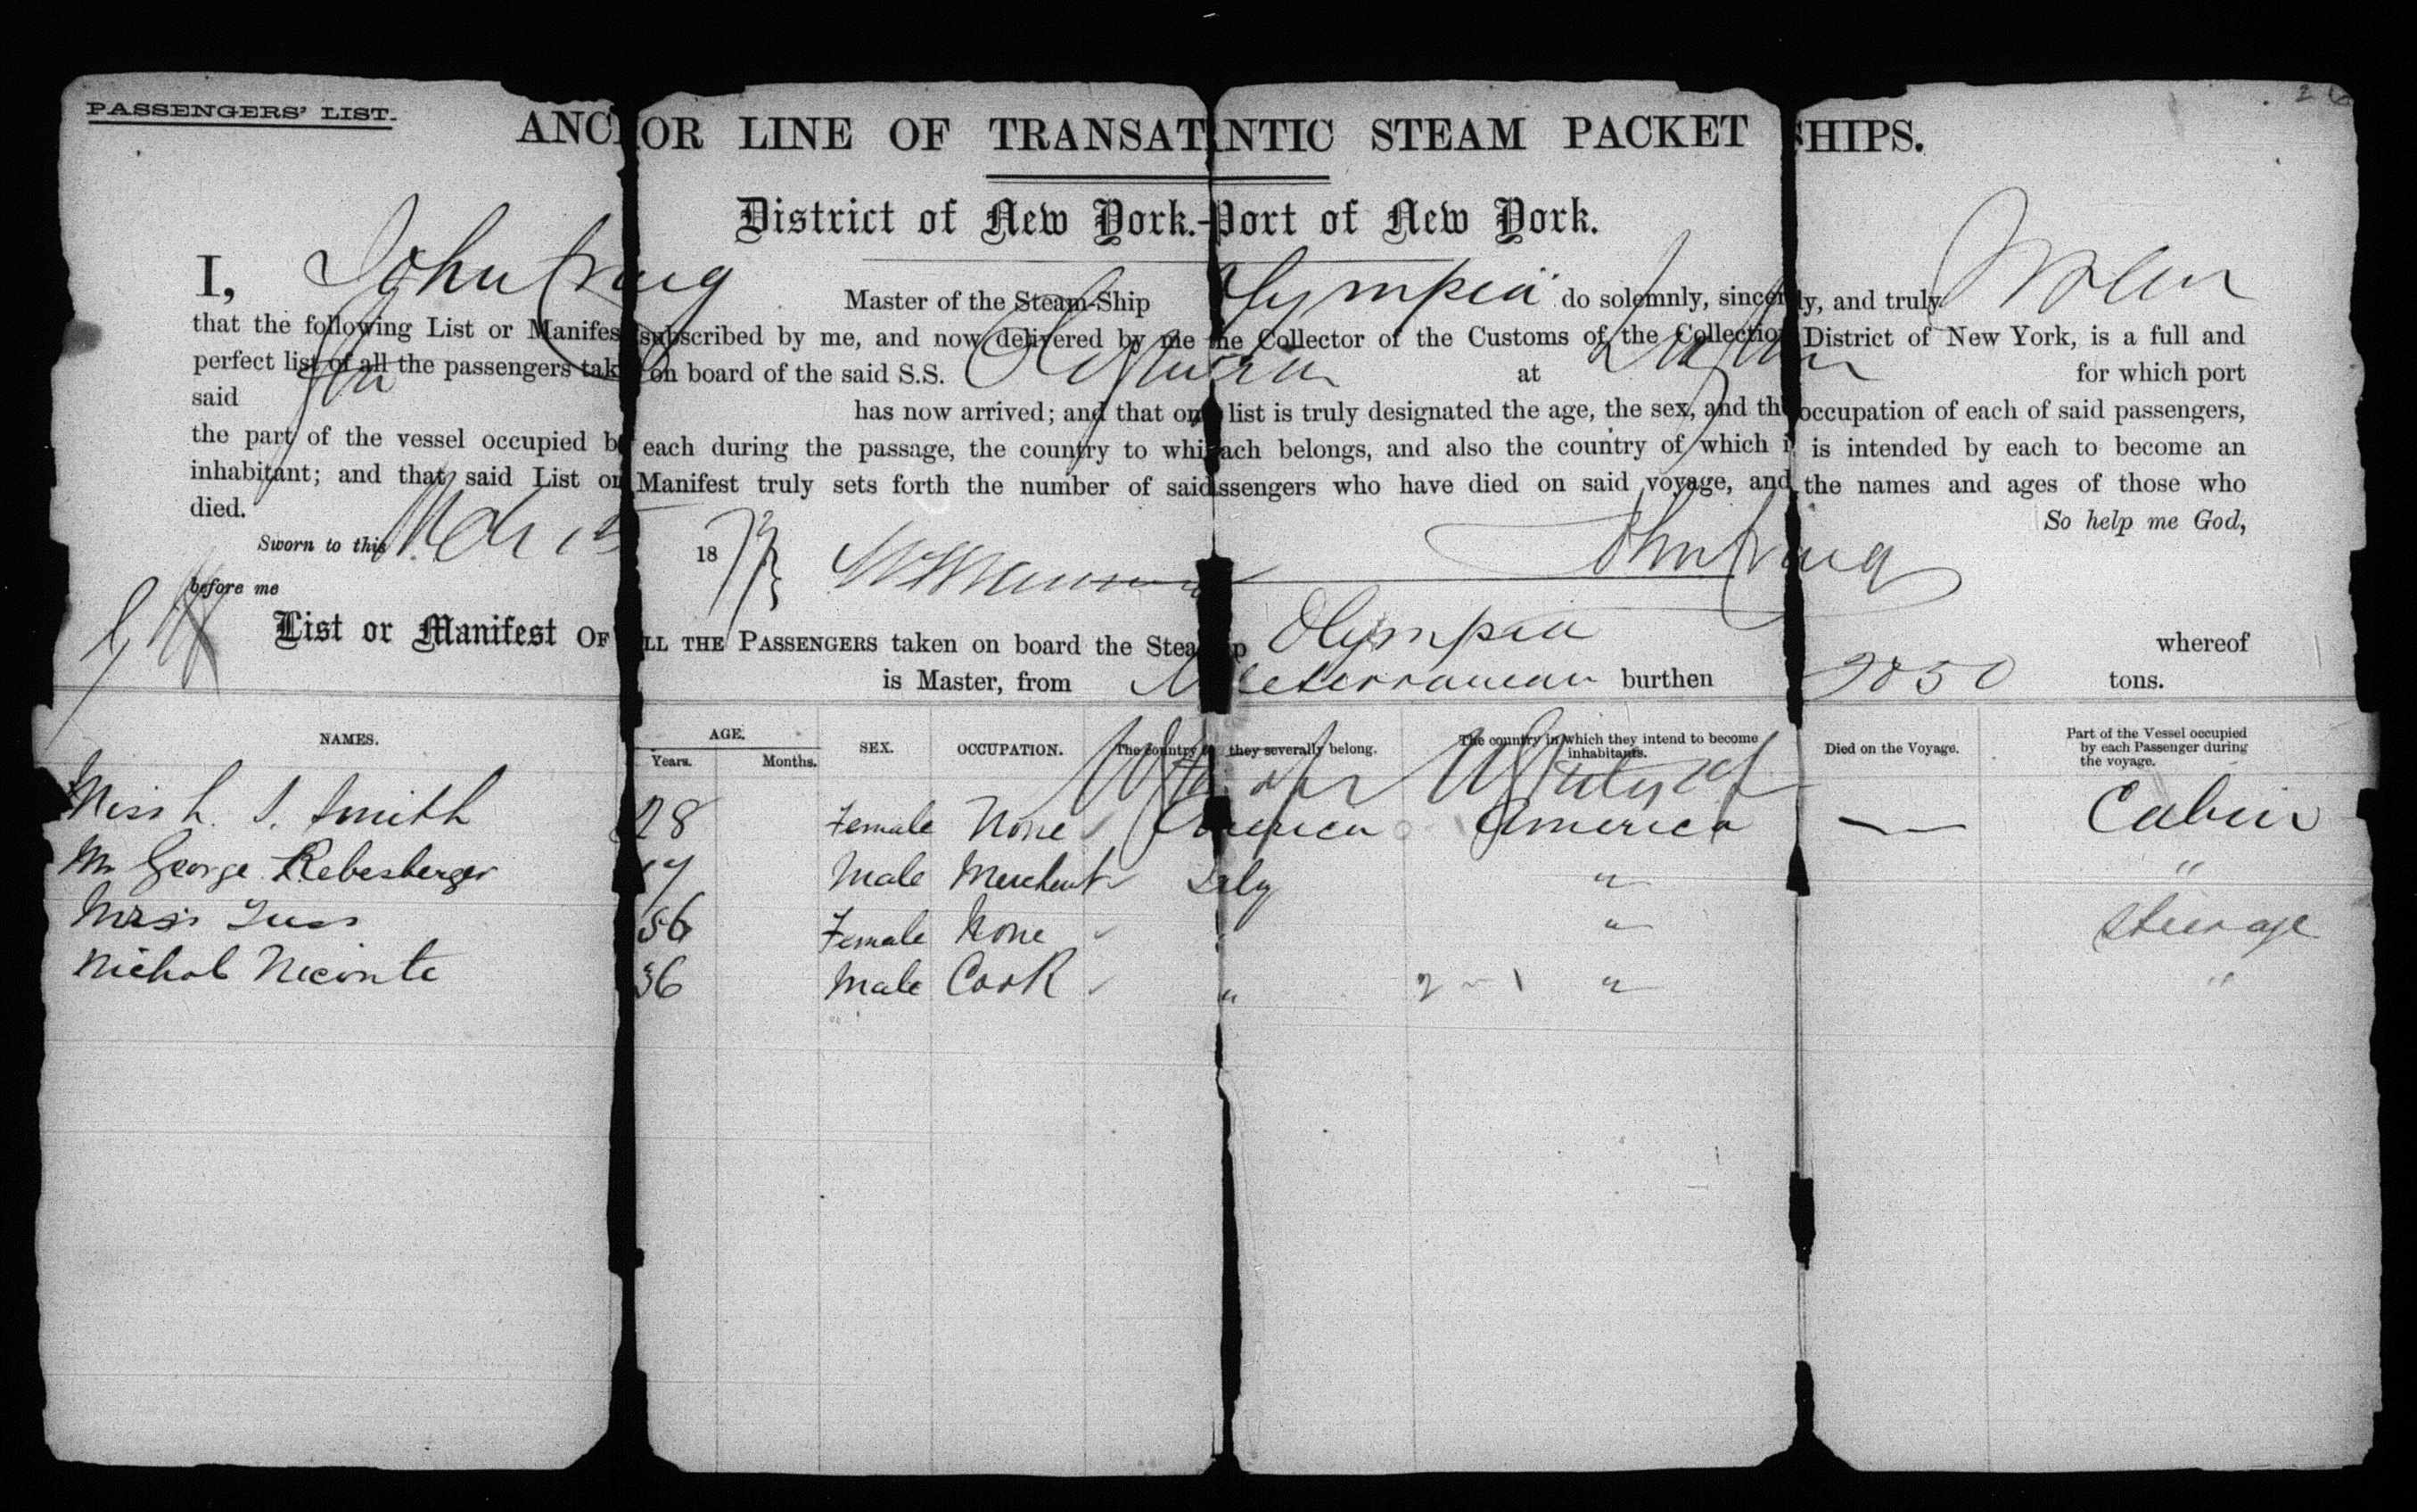 PASSENGERS' LIST.
ANCHOR LINE OF TRANSATLANTIC STEAM PACKET SHIPS.
District of New York.-Port of New York.
I, John Craig Master of the Steam-Ship Olympia do solemnly, sincerely, and truly
that the following List or Manifest subscribed by me, and now delivered by me the Collector of the Customs of the Collection District of New York, is a full and
perfect list of all the passengers taken on board of the said S.S. at for which port
said has now arrived; and that on list is truly designated the age, the sex, and the occupation of each of said passengers,
the part of the vessel occupied by each during the passage, the country to which each belongs, and also the country of which it is intended by each to become an
inhabitant; and that said List or Manifest truly sets forth the number of said passengers who have died on said voyage, and the names and ages of those who
died.
So help me God,
Sworn to this 18 John Craig
before me
List or Manifest OF ALL THE PASSENGERS taken on board the Steamship Olympia whereof
is Master, from Mediterranean burthen 2050 tons.
NAMES. AGE. Years. Months. SEX. OCCUPATION. The country to they severally belong. The country in which they intend to become inhabitants. Died on the Voyage. Part of the Vessel occupied by each Passenger during the voyage.
Miss L. S. Smith 28 Female None America America — Cabin
Mr George Rebesberger 17 Male Merchant Italy " "
56 Female None " " Steerage
Nichol Neconte 36 Male Cook " 2 - 1 " "